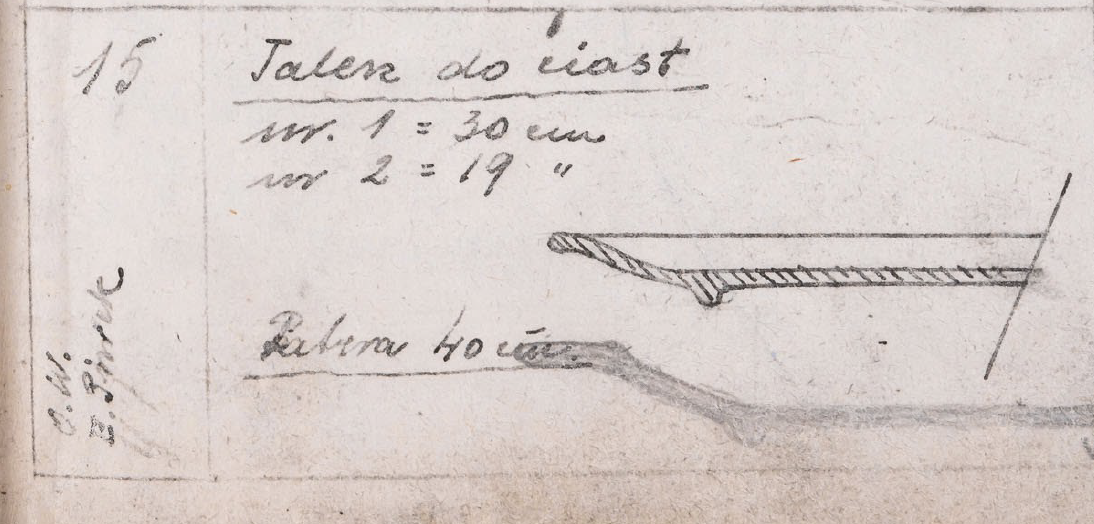 15
Talerz do ciast
nr. 1 = 30 cm
nr 2 = 19 "
Patera 40 cm.